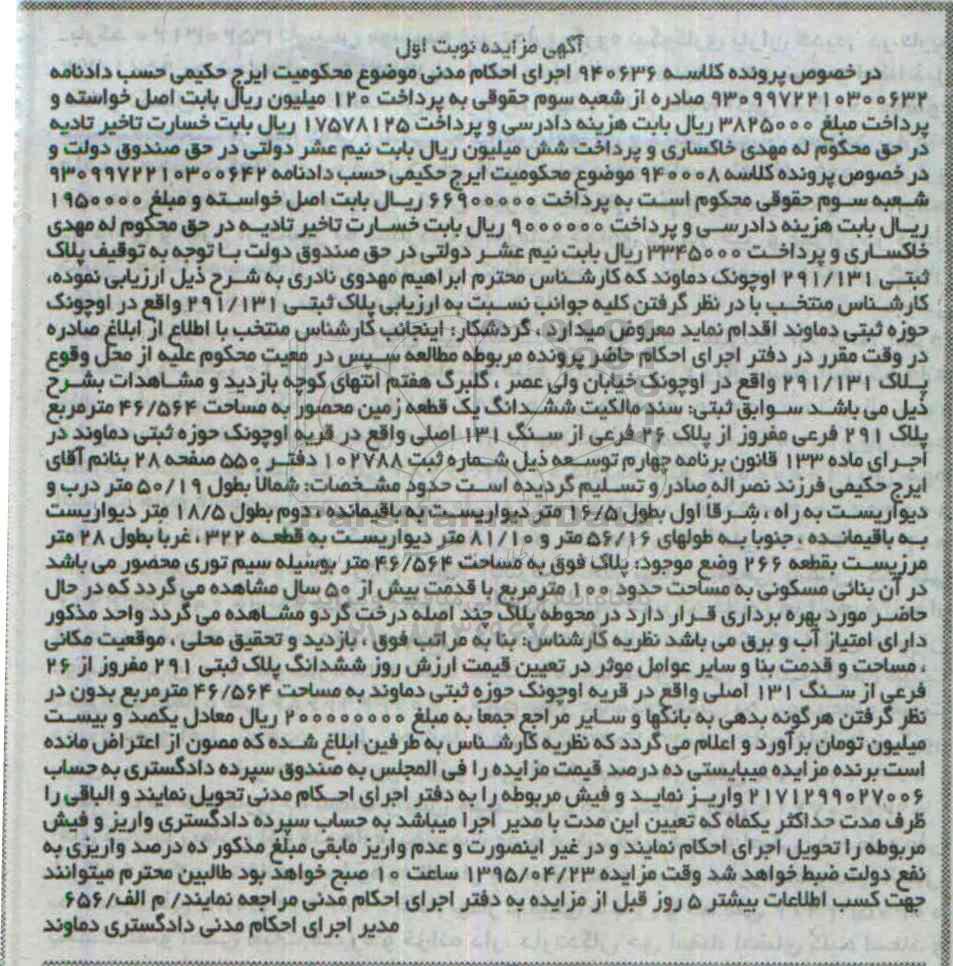 آگهی مزایده نوبت اول
در خصوص پرونده کلاسه ۹۴۰۶۳۶ اجرای احکام مدنی موضوع محکومیت ایرج حکیمی حسب دادنامه
۹۳۰۹۹۷۲۲۱۰۳۰۰۶۳۲ صادره از شعبه سوم حقوقی به پرداخت ۱۲۰ میلیون ریال بابت اصل خواسته و
پرداخت مبلغ ۳۸۲۵۰۰۰ ریال بابت هزینه دادرسی و پرداخت ۱۷۵۷۸۱۲۵ ریال بابت خسارت تاخیر تادیه
در حق محکوم له مهدی خاکساری و پرداخت شش میلیون ریال بابت نیم عشر دولتی در حق صندوق دولت و
در خصوص پرونده کلاسه ۹۴۰۰۰۸ موضوع محکومیت ایرج حکیمی حسب دادنامه ۹۳۰۹۹۷۲۲۱۰۳۰۰۶۴۲
شعبه سوم حقوقی محکوم است به پرداخت ۶۶۹۰۰۰۰۰ ریال بابت اصل خواسته و مبلغ ۱۹۵۰۰۰۰
ریال بابت هزینه دادرسی و پرداخت ۹۰۰۰۰۰۰ ریال بابت خسارت تاخیر تادیه در حق محکوم له مهدی
خاکساری و پرداخت ۳۳۴۵۰۰۰ ریال بابت نیم عشر دولتی در حق صندوق دولت با توجه به توقیف پلاک
ثبتی ۲۹۱/۱۳۱ اوچونک دماوند که کارشناس محترم ابراهیم مهدوی نادری به شرح ذیل ارزیابی نموده،
کارشناس منتخب با در نظر گرفتن کلیه جوانب نسبت به ارزیابی پلاک ثبتی ۲۹۱/۱۳۱ واقع در اوچونک
حوزه ثبتی دماوند اقدام نماید معروض میدارد ، گردشکار: اینجانب کارشناس منتخب با اطلاع از ابلاغ صادره
در وقت مقرر در دفتر اجرای احکام حاضر پرونده مربوطه مطالعه سپس در معیت محکوم علیه از محل وقوع
پلاک ۲۹۱/۱۳۱ واقع در اوچونک خیابان ولی عصر ، گلبرگ هفتم انتهای کوچه بازدید و مشاهدات بشرح
ذیل می باشد سوابق ثبتی: سند مالکیت ششدانگ یک قطعه زمین محصور به مساحت ۴۶/۵۶۴ مترمربع
پلاک ۲۹۱ فرعی مفروز از پلاک ۲۶ فرعی از سنگ ۱۳۱ اصلی واقع در قریه اوچونک حوزه ثبتی دماوند در
اجرای ماده ۱۳۳ قانون برنامه چهارم توسعه ذیل شماره ثبت ۱۰۲۷۸۸ دفتر ۵۵۰ صفحه ۲۸ بنانم آقای
ایرج حکیمی فرزند نصراله صادر و تسلیم گردیده است حدود مشخصات: شمالا بطول ۵۰/۱۹ متر درب و
دیواریست به راه ، شرقا اول بطول ۱۶/۵ متر دیواریست به باقیمانده ، دوم بطول ۱۸/۵ متر دیواریست
به باقیمانده ، جنوبا به طولهای ۵۶/۱۶ متر و ۸۱/۱۰ متر دیواریست به قطعه ۳۲۲ ، غربا بطول ۲۸ متر
مرزیست بقطعه ۲۶۶ وضع موجود: پلاک فوق به مساحت ۴۶/۵۶۴ متر بوسیله سیم توری محصور می باشد
در آن بنائی مسکونی به مساحت حدود ۱۰۰ مترمربع با قدمت بیش از ۵۰ سال مشاهده می گردد که در حال
حاضر مورد بهره برداری قرار دارد در محوطه پلاک چند اصله درخت گردو مشاهده می گردد واحد مذکور
دارای امتیاز آب و برق می باشد نظریه کارشناس: بنا به مراتب فوق ، بازدید و تحقیق محلی ، موقعیت مکانی
، مساحت و قدمت بنا و سایر عوامل موثر در تعیین قیمت ارزش روز ششدانگ پلاک ثبتی ۲۹۱ مفروز از ۲۶
فرعی از سنگ ۱۳۱ اصلی واقع در قریه اوچونک حوزه ثبتی دماوند به مساحت ۴۶/۵۶۴ مترمربع بدون در
نظر گرفتن هرگونه بدهی به بانگها و سایر مراجع جمعا به مبلغ ۲۰۰۰۰۰۰۰۰ ریال معادل یکصد و بیست
میلیون تومان برآورد و اعلام می گردد که نظریه کارشناس به طرفین ابلاغ شده که مصون از اعتراض مانده
است برنده مزایده میبایستی ده درصد قیمت مزایده را فی المجلس به صندوق سپرده دادگستری به حساب
۲۱۷۱۲۹۹۰۲۷۰۰۶ واریز نماید و فیش مربوطه را به دفتر اجرای احکام مدنی تحویل نمایند و الباقی را
ظرف مدت حداکثر یکماه که تعیین این مدت با مدیر اجرا میباشد به حساب سپرده دادگستری واریز و فیش
مربوطه را تحویل اجرای احکام نمایند و در غیر اینصورت و عدم واریز مابقی مبلغ مذکور ده درصد واریزی به
نفع دولت ضبط خواهد شد وقت مزایده ۱۳۹۵/۰۴/۲۳ ساعت ۱۰ صبح خواهد بود طالبین محترم میتوانند
جهت کسب اطلاعات بیشتر ۵ روز قبل از مزایده به دفتر اجرای احکام مدنی مراجعه نمایند/ م الف/۶۵۶
مدیر اجرای احکام مدنی دادگستری دماوند